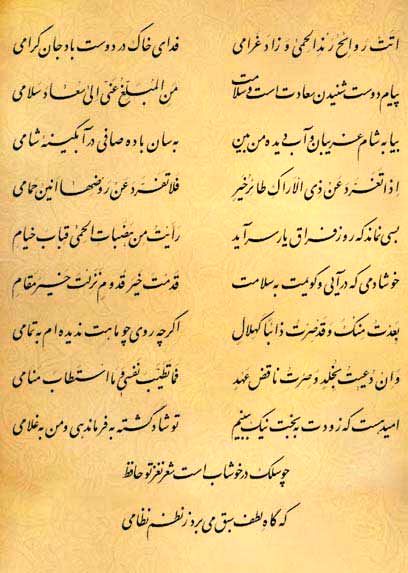 اتت روائح رند الحمی و زاد غرامی فدای خاک در دوست باد جان گرامی
پیام دوست شنیدن سعادت است و سلامت من المبلغ عنی الی سعاد سلامی
بیا به شام غریبان و آب دیده من بین به سان باده صافی در آبگینهٔ شامی
اذا تغرد عن ذی الاراک طائر خیر فلا تفرد عن روضها انین حمامی
بسی نماند که روز فراق یار سرآید رأیت من هضبات الحمی قباب خیام
خوشا دمی که درآیی و گویمت به سلامت قدمت خیر قدوم نزلت خیر مقام
بعدت منک و قد صرت ذائبا کهلال اگرچه روی چو ماهت ندیده‌ام به تمامی
وان دعیت بخلد و صرت ناقض عهد فما تطیب نفسی و ما استطاب منامی
امیدست که زودت به بخت نیک ببینم تو شاد گشته به فرماندهی و من به غلامی
چو سلک در خوشاب است شعر نغز تو حافظ
که گاه لطف سبق می‌برد ز نظم نظامی